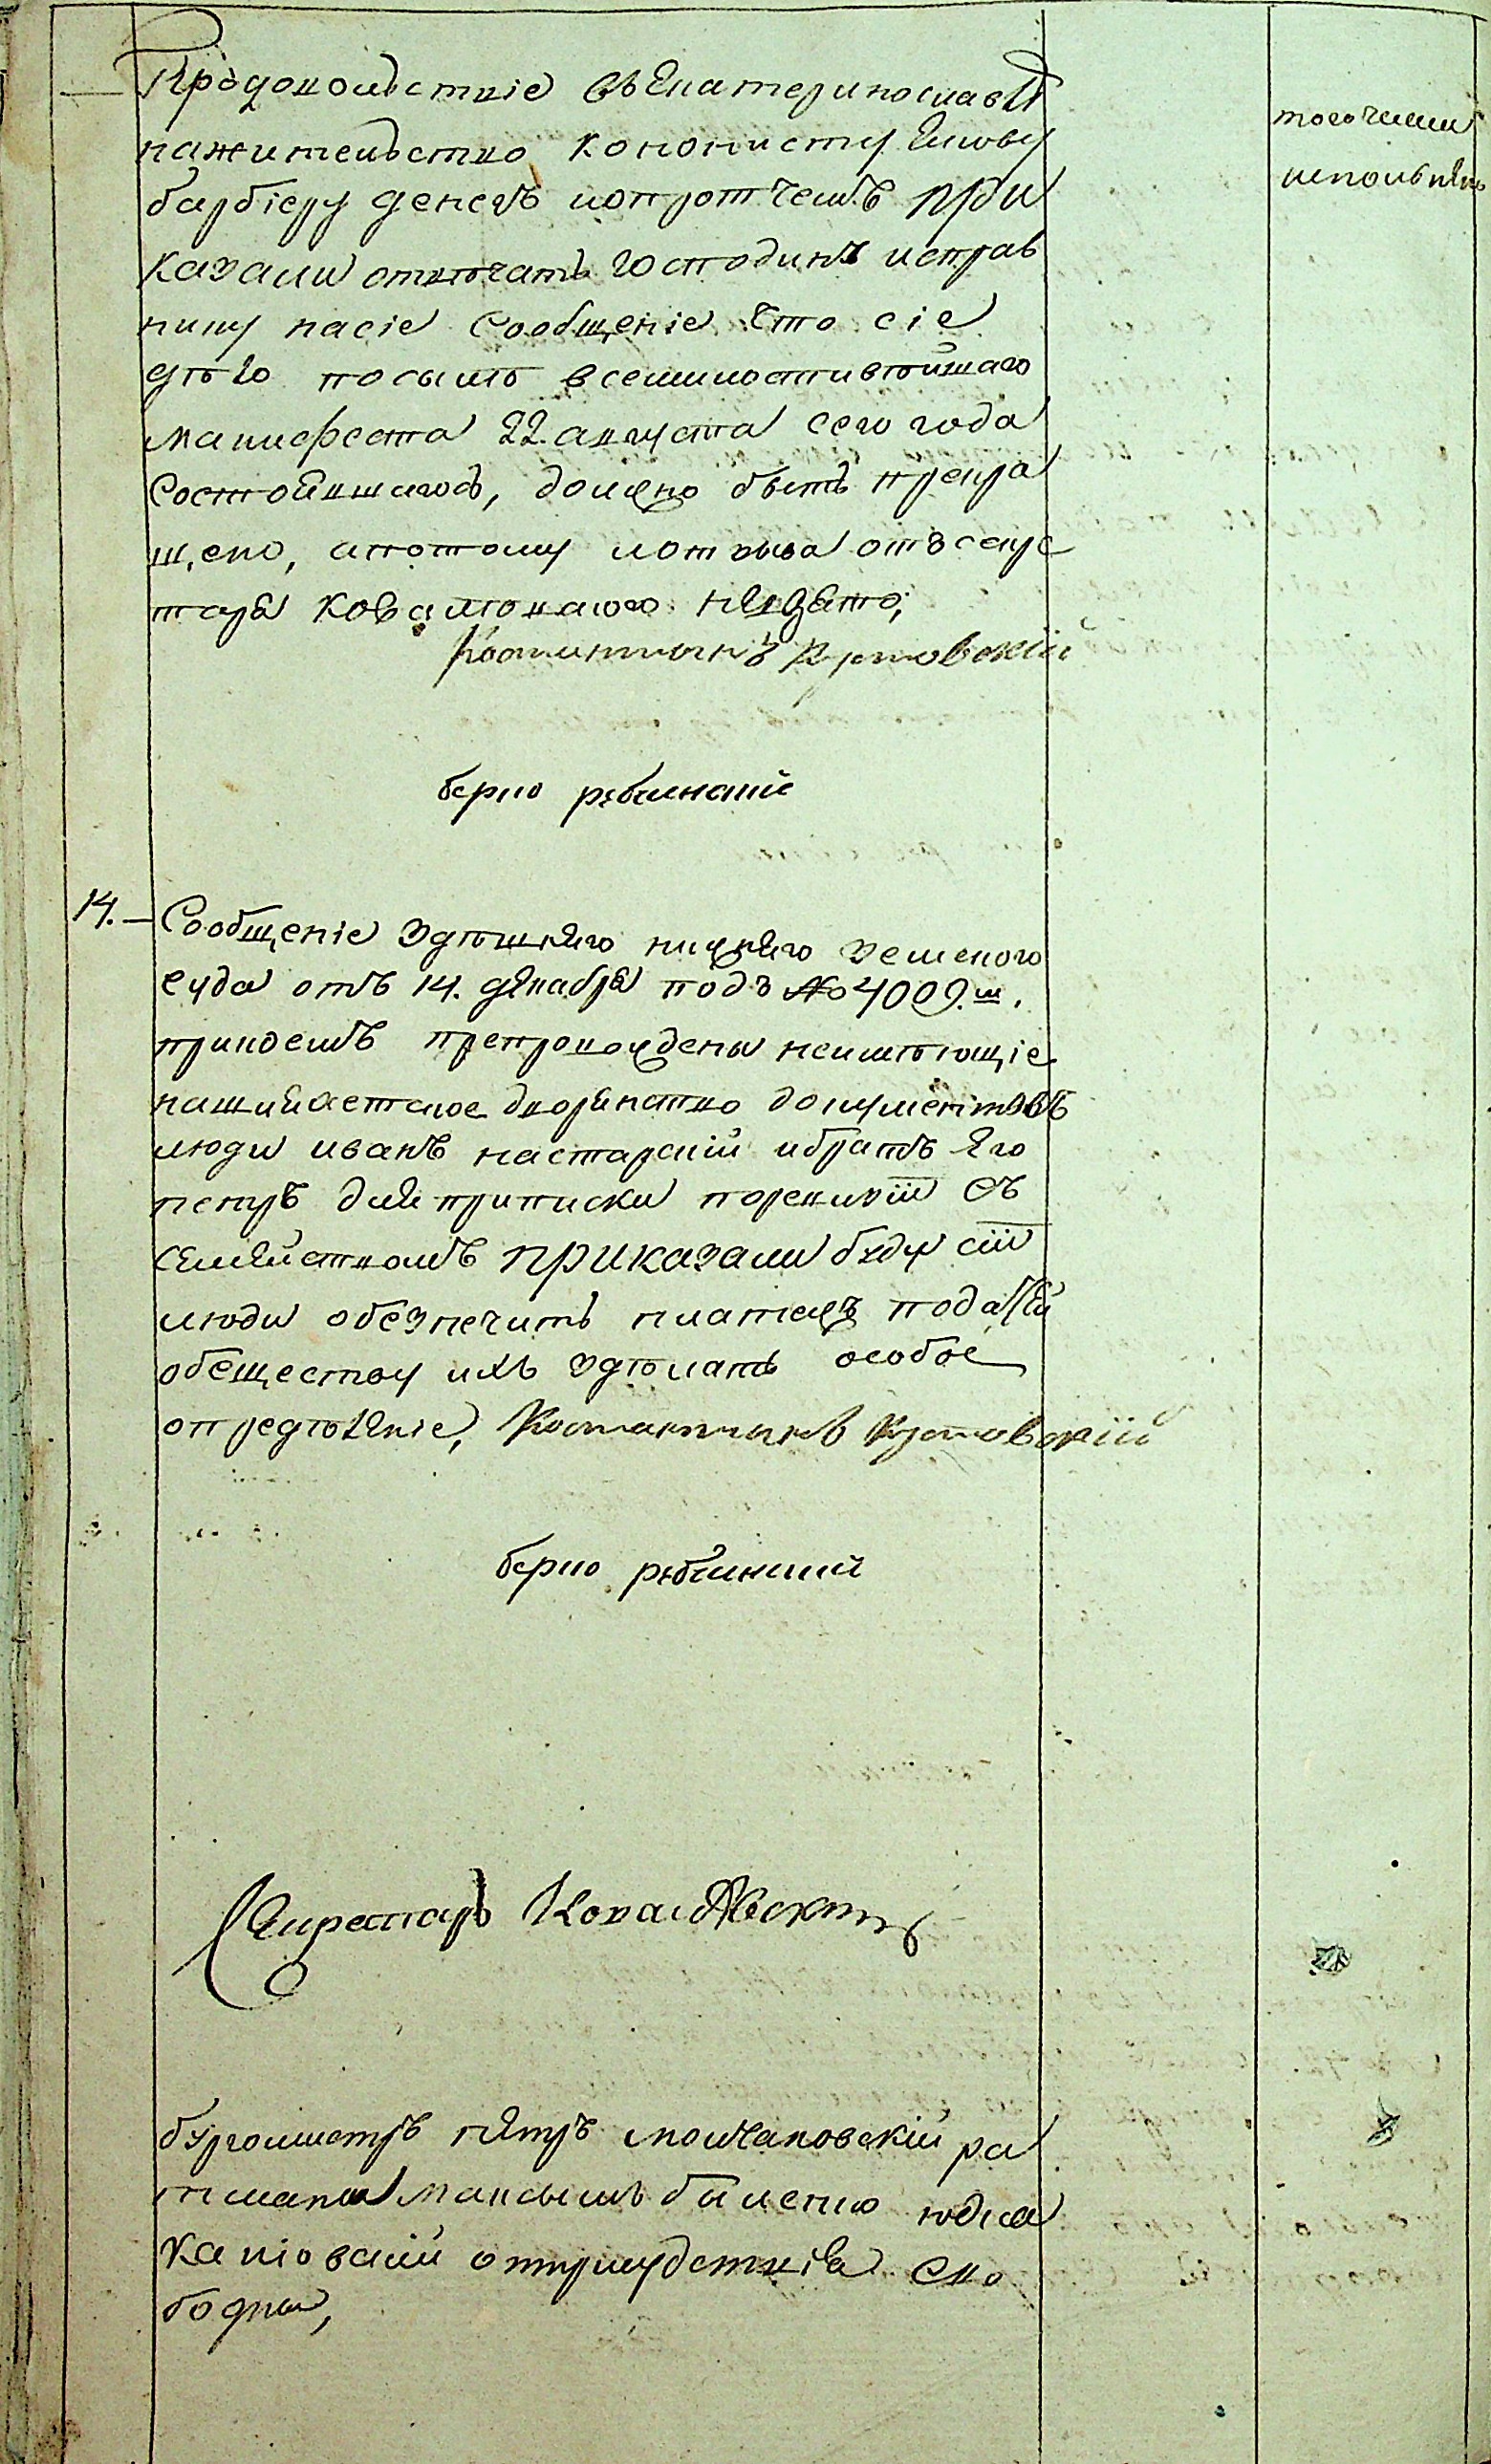 Продовольствіе въ Екатеринославѣ
на жительство колонисту Якову
барбіеру денегъ и о протчемъ при
казали отвѣчать господину исправ
нику на сіе сообщеніе что сіе
дѣло по силѣ всемилостивѣйшаго
манифеста 22. августа сего года
состоявшагось, должно быть прекра
щено, а потому и отзыва отъ секре
таря Ковалевского не взято,
Костантинъ Кутовскій
верно рябинский
14. — Сообщеніе здѣшняго нижняго земского
суда отъ 14. декабря подъ № 4009.м.
при коемъ препровождены неимѣющіе
на шляхетское дворянство документовъ
люди иванъ настарскій и братъ его
петръ для приписки по ревизіи съ
семействомъ приказали буде сіи
люди обезпечить платежъ податей
обеществу ихъ здѣлать особое
опредѣленіе, Костантинъ Кутовскій
верно рябинский
Секретарь Ковалевский
бургомистръ петръ молчановскій ра
тманы максымъ биленко юдка
каневскій о присудствія сво
бодны,
того числа
исполнено